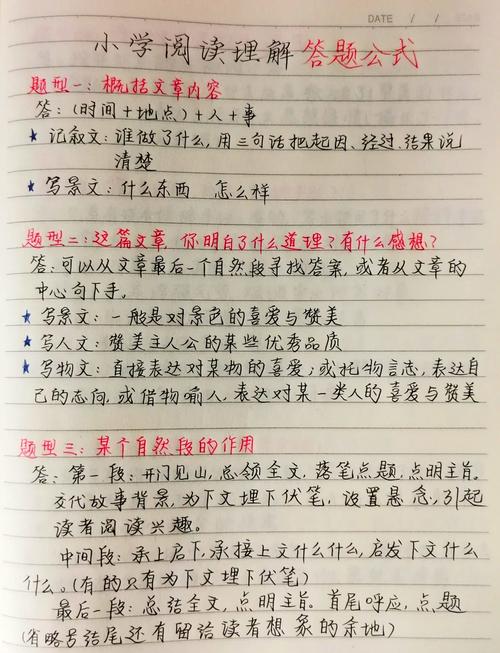 DATE / /
小学阅读理解答题公式
题型一：概括文章内容
答：（时间+地点）+人+事
★ 记叙文：谁做了什么，用三句话把起因、经过、结果说
清楚
★ 写景文：什么东西 怎么样
题型二：这篇文章，你明白了什么道理？有什么感想？
答：可以从文章最后一个自然段寻找答案，或者从文章的
中心句下手。
★ 写景文：一般是对景色的喜爱与赞美
★ 写人文：赞美主人公的某些优秀品质
★ 写物文：直接表达对某物的喜爱；或托物言志，表达自
己的志向，或借物喻人，表达对某一类人的喜爱与赞美
题型三：某个自然段的作用
答：第一段：开门见山，总领全文，落笔点题，点明主旨。
交代故事背景，为下文埋下伏笔，设置悬念，引起
读者阅读兴趣。
中间段：承上启下，承接上文什么什么，启发下文什么
什么。（有的只有为下文埋下伏笔）
最后一段：总结全文，点明主旨。首尾呼应，点题
（省略号结尾还有留给读者想象的余地）